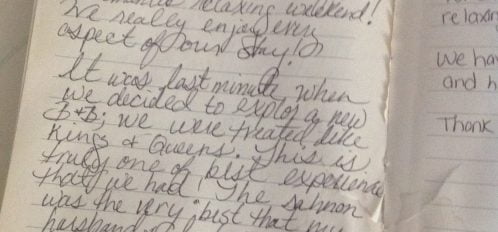 relaxing weekend!
We really enjoy every
aspect of our stay!
It was last minute when
we decided to explor a new
B+B; we were treated like
Kings & Queens. This is
truly one of bist experience
that we had! The salmon
was the very bist that my
relaxin
We hav
and h
Thank